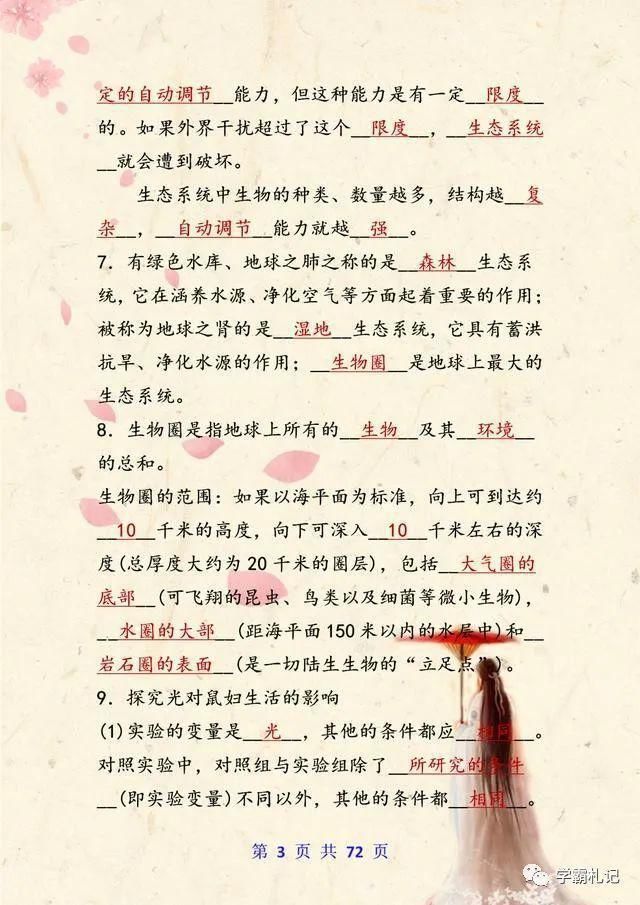 定的自动调节__能力，但这种能力是有一定__限度__
的。如果外界干扰超过了这个__限度__，__生态系统
__就会遭到破坏。
生态系统中生物的种类、数量越多，结构越__复
杂__，__自动调节__能力就越__强__。
7．有绿色水库、地球之肺之称的是__森林__生态系
统，它在涵养水源、净化空气等方面起着重要的作用；
被称为地球之肾的是__湿地__生态系统，它具有蓄洪
抗旱、净化水源的作用；__生物圈__是地球上最大的
生态系统。
8．生物圈是指地球上所有的__生物__及其__环境__
的总和。
生物圈的范围：如果以海平面为标准，向上可到达约
__10__千米的高度，向下可深入__10__千米左右的深
度(总厚度大约为20千米的圈层)，包括__大气圈的
底部__(可飞翔的昆虫、鸟类以及细菌等微小生物)，
__水圈的大部__(距海平面150米以内的水层中)和__
岩石圈的表面__(是一切陆生生物的“立足点”)。
9．探究光对鼠妇生活的影响
(1)实验的变量是__光__，其他的条件都应__相同__。
对照实验中，对照组与实验组除了__所研究的条件
__(即实验变量)不同以外，其他的条件都__相同__。
第 3 页 共 72 页
学霸札记